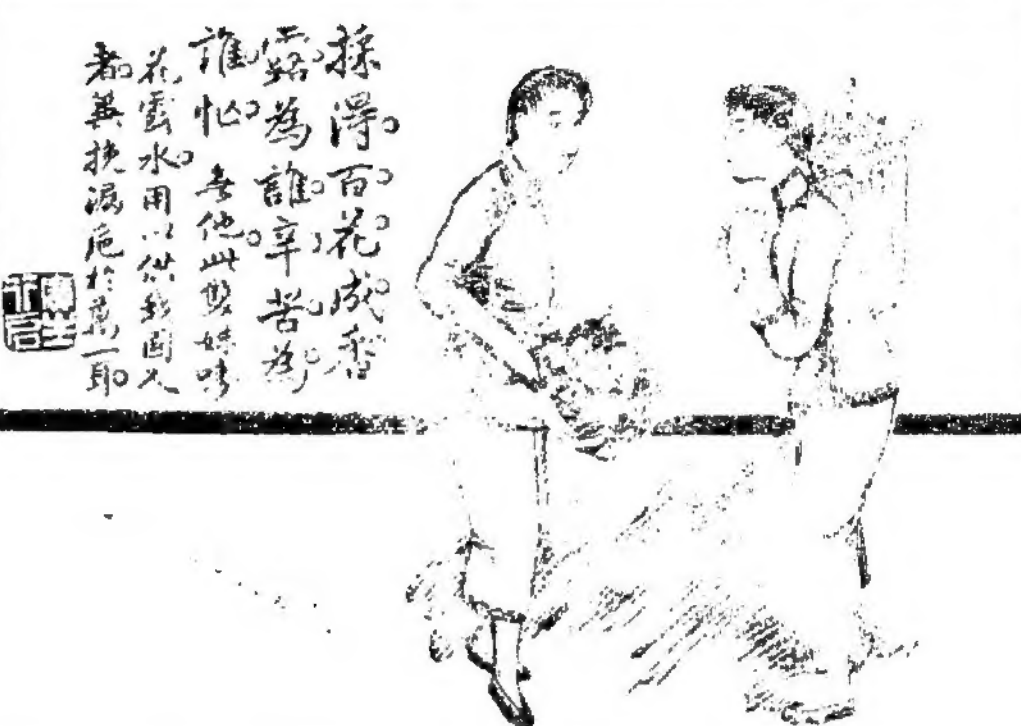 採得百花成香
露為誰辛苦為
誰忙 無他此雙妹嘜
花露水用以供我國人
者冀挽漏卮於萬一耳